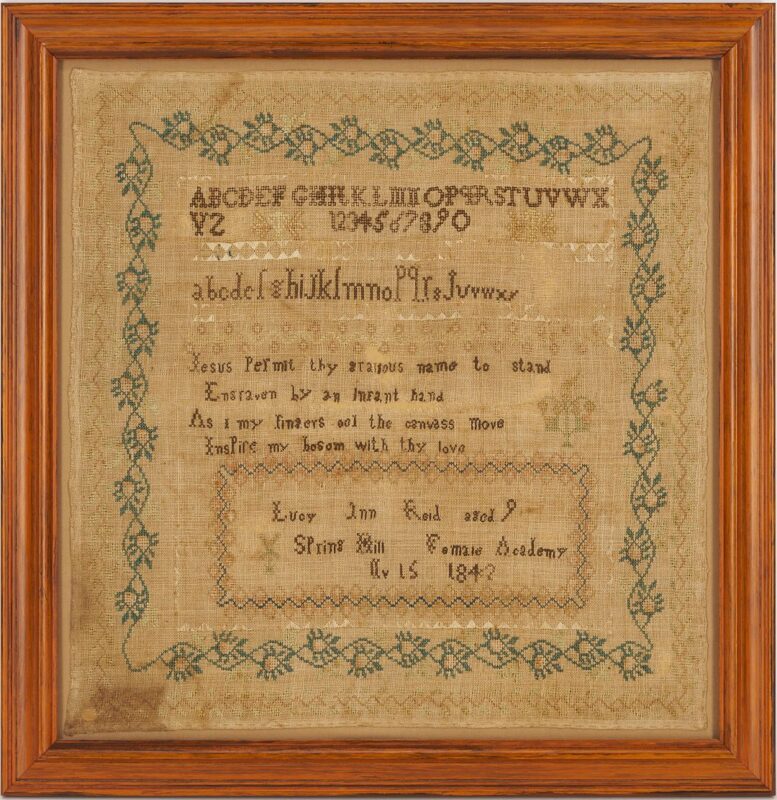 ABCDEFGHIKLMNOPQRSTUVWX
YZ 1234567890
abcdefghijklmnopqrsJuvwxy
Jesus Permit thy gracious name to stand
Engraven by an infant hand
As i my fingers oel the canvass move
Inspire my bosom with thy love
Lucy Ann Reid aged 9
Spring Hill Female Academy
15 1842